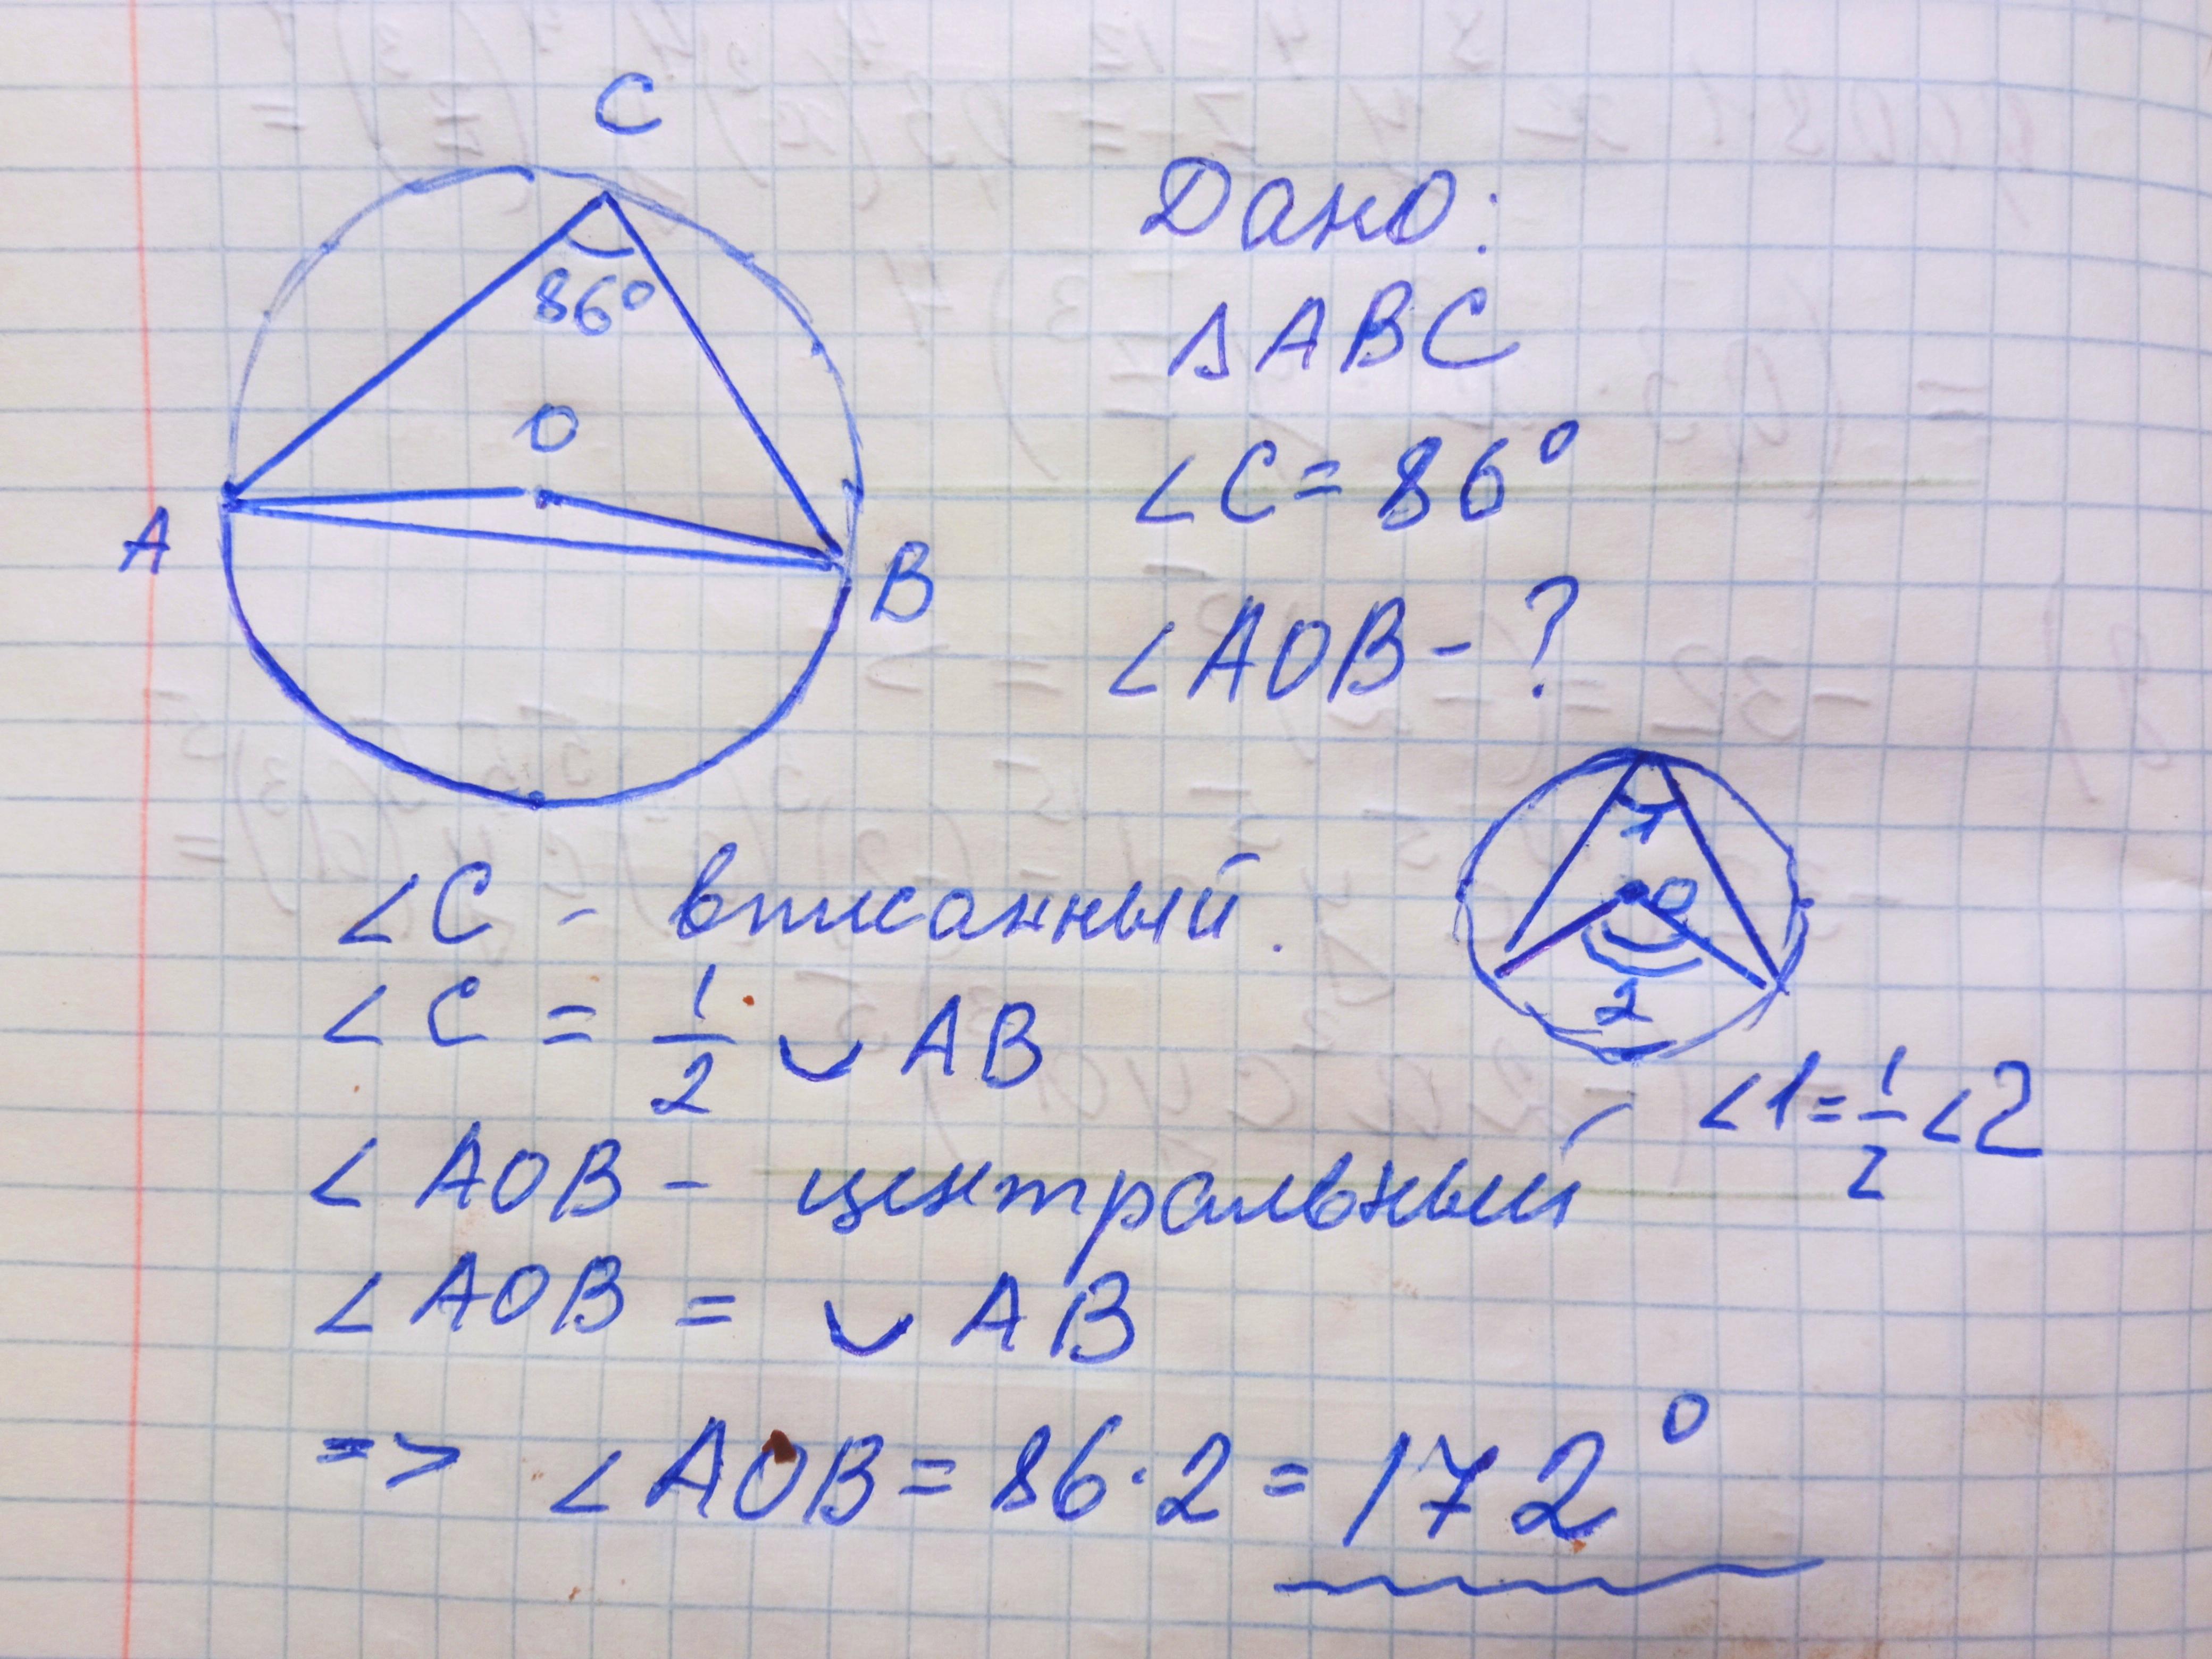 C
86°
O
A
B
Дано:
Δ ABC
∠C = 86°
∠AOB - ?
1
O
2
∠1 = 1/2 ∠2
∠C - вписанный.
∠C = 1/2 ◡ AB
∠AOB - центральный
∠AOB = ◡ AB
=> ∠AOB = 86 · 2 = 172°